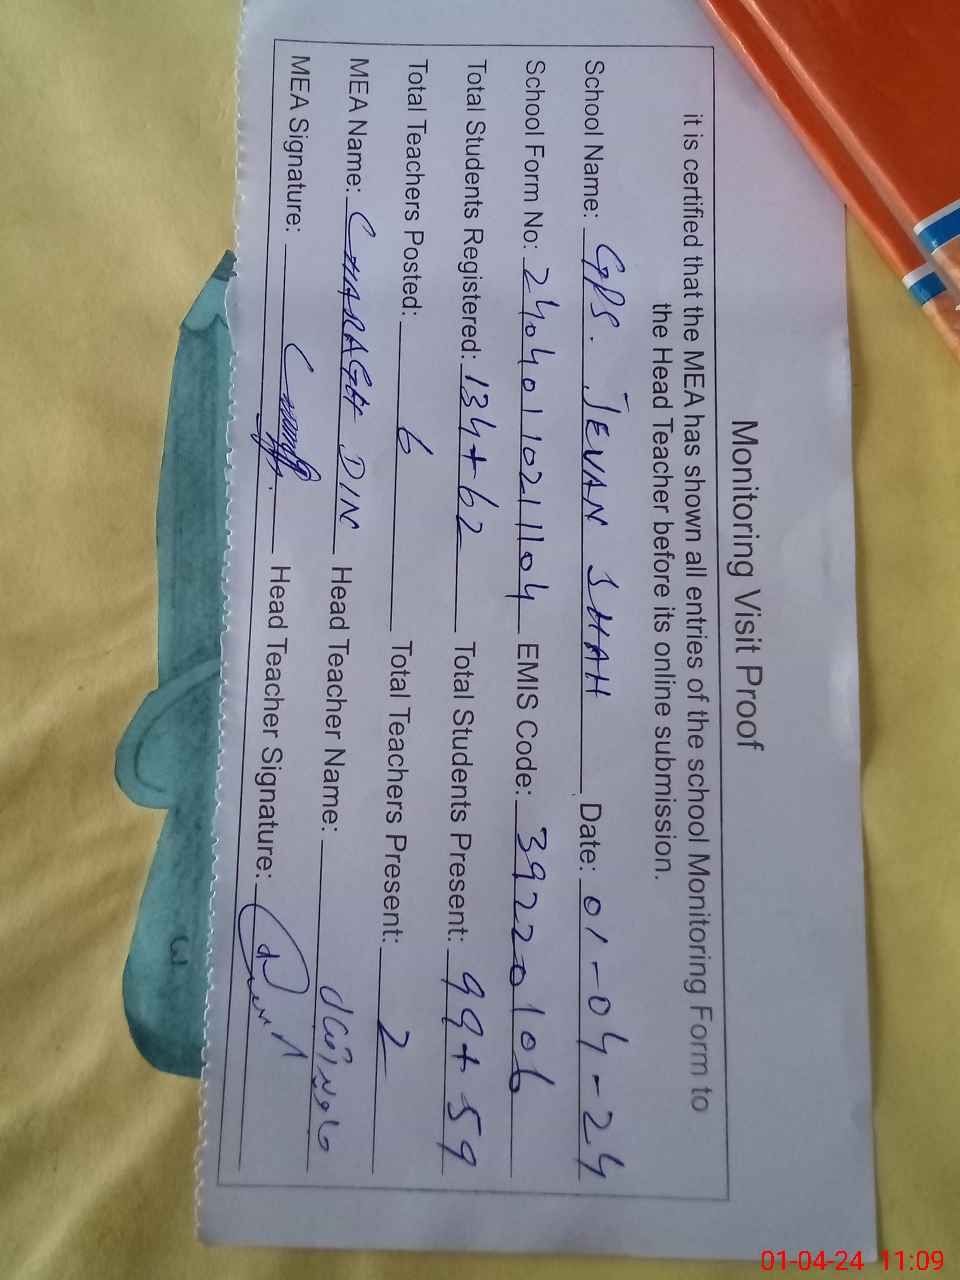 Monitoring Visit Proof
it is certified that the MEA has shown all entries of the school Monitoring Form to
the Head Teacher before its online submission.
School Name: GPS. JEVAN SHAH Date: 01-04-24
School Form No: 2404011021104 EMIS Code: 39220106
Total Students Registered: 134+62 Total Students Present: 99+59
Total Teachers Posted: 6 Total Teachers Present: 2
MEA Name: CHARAGH DIN Head Teacher Name:
MEA Signature: Head Teacher Signature:
01-04-24 11:09